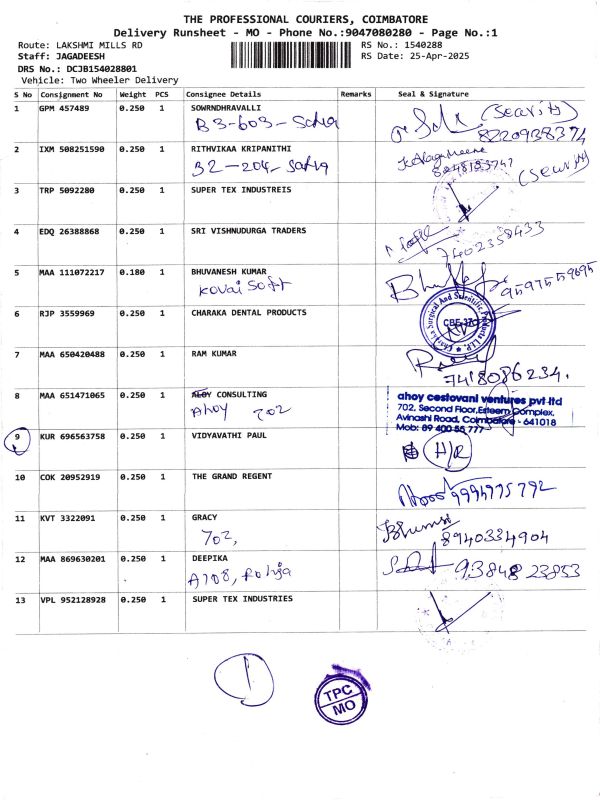 THE PROFESSIONAL COURIERS, COIMBATORE
Delivery Runsheet - MO - Phone No.:9047080280 - Page No.:1
Route: LAKSHMI MILLS RD
RS No.: 1540288
Staff: JAGADEESH
RS Date: 25-Apr-2025
DRS No.: DCJB154028801
Vehicle: Two Wheeler Delivery
S No Consignment No Weight PCS Consignee Details Remarks Seal & Signature
1 GPM 457489 0.250 1 SOWRNDHRAVALLI
B3-603-Sahya
(Security)
8220938374
2 IXM 508251590 0.250 1 RITHVIKAA KRIPANITHI
B2-204-Sahya
(Security)
3 TRP 5092280 0.250 1 SUPER TEX INDUSTREIS
4 EDQ 26388868 0.250 1 SRI VISHNUDURGA TRADERS
7402358433
5 MAA 111072217 0.180 1 BHUVANESH KUMAR
Kovai Soft
9597559695
6 RJP 3559969 0.250 1 CHARAKA DENTAL PRODUCTS
Charaka Surgical And Scientific Products LLP.
7 MAA 650420488 0.250 1 RAM KUMAR
7418086234.
8 MAA 651471065 0.250 1 ALOY CONSULTING
Ahoy 702
ahoy cestovani ventures pvt ltd
702, Second Floor, Esteem Complex,
Avinashi Road, Coimbatore - 641018
Mob: 89 400 55 777
9 KUR 696563758 0.250 1 VIDYAVATHI PAUL
H/R
10 COK 20952919 0.250 1 THE GRAND REGENT
9994775792
11 KVT 3322091 0.250 1 GRACY
702,
8940334904
12 MAA 869630201 0.250 1 DEEPIKA
A108, Rohja
9384823853
13 VPL 952128928 0.250 1 SUPER TEX INDUSTRIES
1
TPC
MO